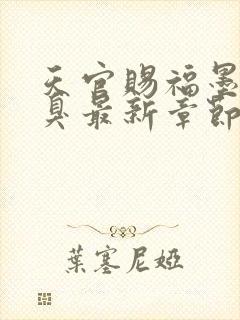 天官賜福墨
臭最新章節
葉塞尼婭